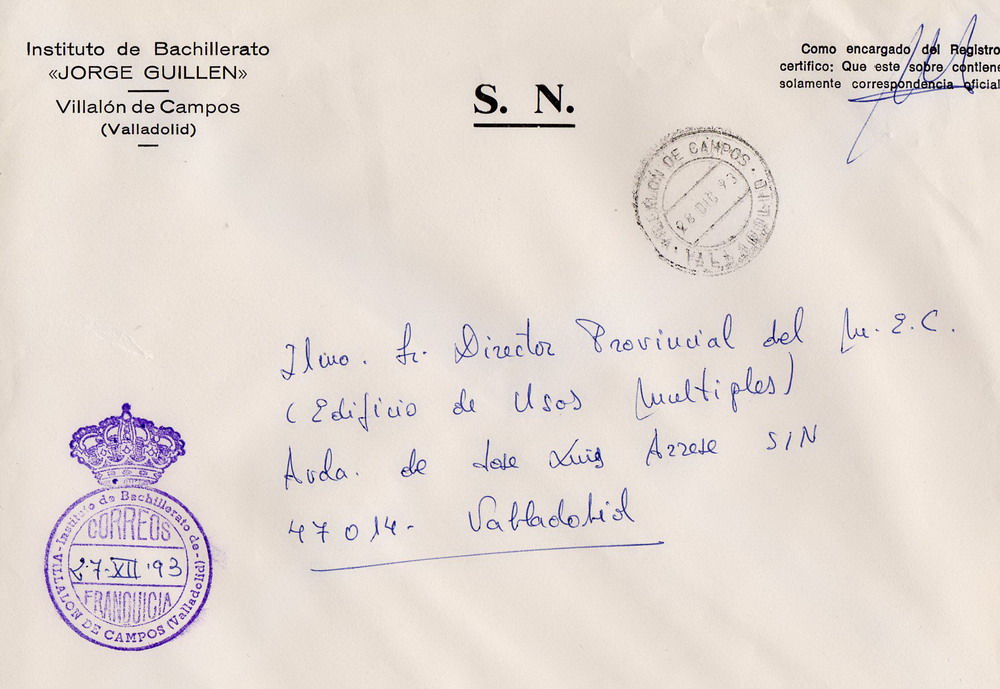 Instituto de Bachillerato
«JORGE GUILLEN»
Villalón de Campos
(Valladolid)
S. N.
Como encargado del Registro
certifico: Que este sobre contiene
solamente correspondencia oficial
VILLALON DE CAMPOS · VALLADOLID
28 DIC 93
Ilmo. Sr. Director Provincial del M.E.C.
(Edificio de Usos Multiples)
Avda. de Jose Luis Arrese S/N
47014- Valladolid
-Instituto de Bachillerato de-
VILLALON DE CAMPOS (Valladolid)
CORREOS
27-XII-93
FRANQUICIA